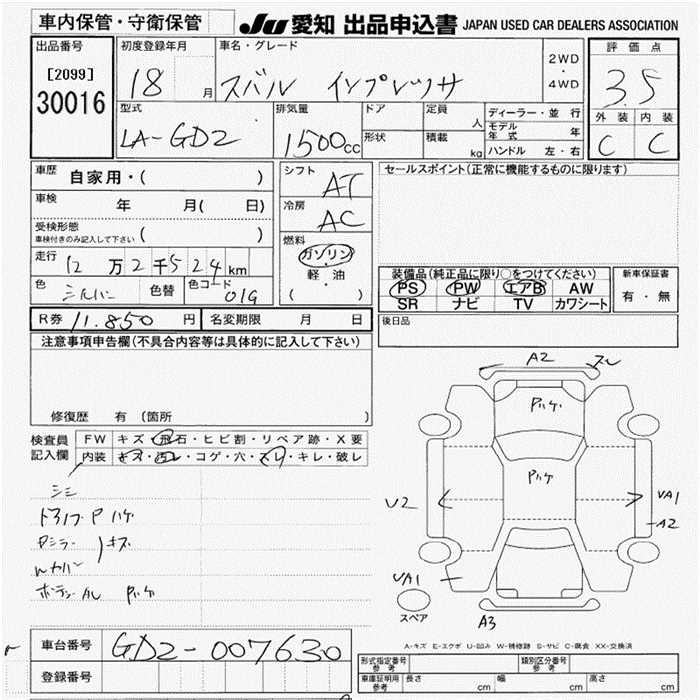 車内保管・守衛保管
JU 愛知 出品申込書 JAPAN USED CAR DEALERS ASSOCIATION
出品番号
[2099]
30016
初度登録年月
18 月
車名・グレード
スバル インプレッサ
2WD
・
4WD
評価点
3.5
外装 内装
C C
型式
LA-GD2
排気量
1500cc
ドア
形状
定員
人
積載
kg
ディーラー・並行
モデル年式 年
ハンドル 左・右
車歴
自家用・( )
車検
年 月( 日)
受検形態
車検付きのみ記入して下さい ( )
走行
12万2千524km
色
シルバー
色替
色コード
01G
シフト
AT
冷房
AC
燃料
ガソリン
軽・油
( )
セールスポイント(正常に機能するものに限ります)
装備品(純正品に限り○をつけてください)
PS PW エアB AW
SR ナビ TV カワシート
新車保証書
有・無
R券 11,850 円
名変期限 月 日
後日品
注意事項申告欄(不具合内容等は具体的に記入して下さい)
修復歴 有 (箇所 )
検査員
記入欄
FW キズ・飛石・ヒビ割・リペア跡・X要
内装 キズ・汚レ・コゲ・穴・スレ・キレ・破レ
シミ
Pシミラー キズ
Wカバー
A2 スレ
Pハゲ
Pハゲ
U2
UA1
A2
UA1
A3
スペア
A-キズ E-エクボ U-凹み W-補修跡 S-サビ C-腐食 XX-交換済
車台番号
GD2-007630
登録番号
形式指定番号
参考
類別区分番号
参考
車庫証明用
参考
長さ cm 幅 cm 高さ cm